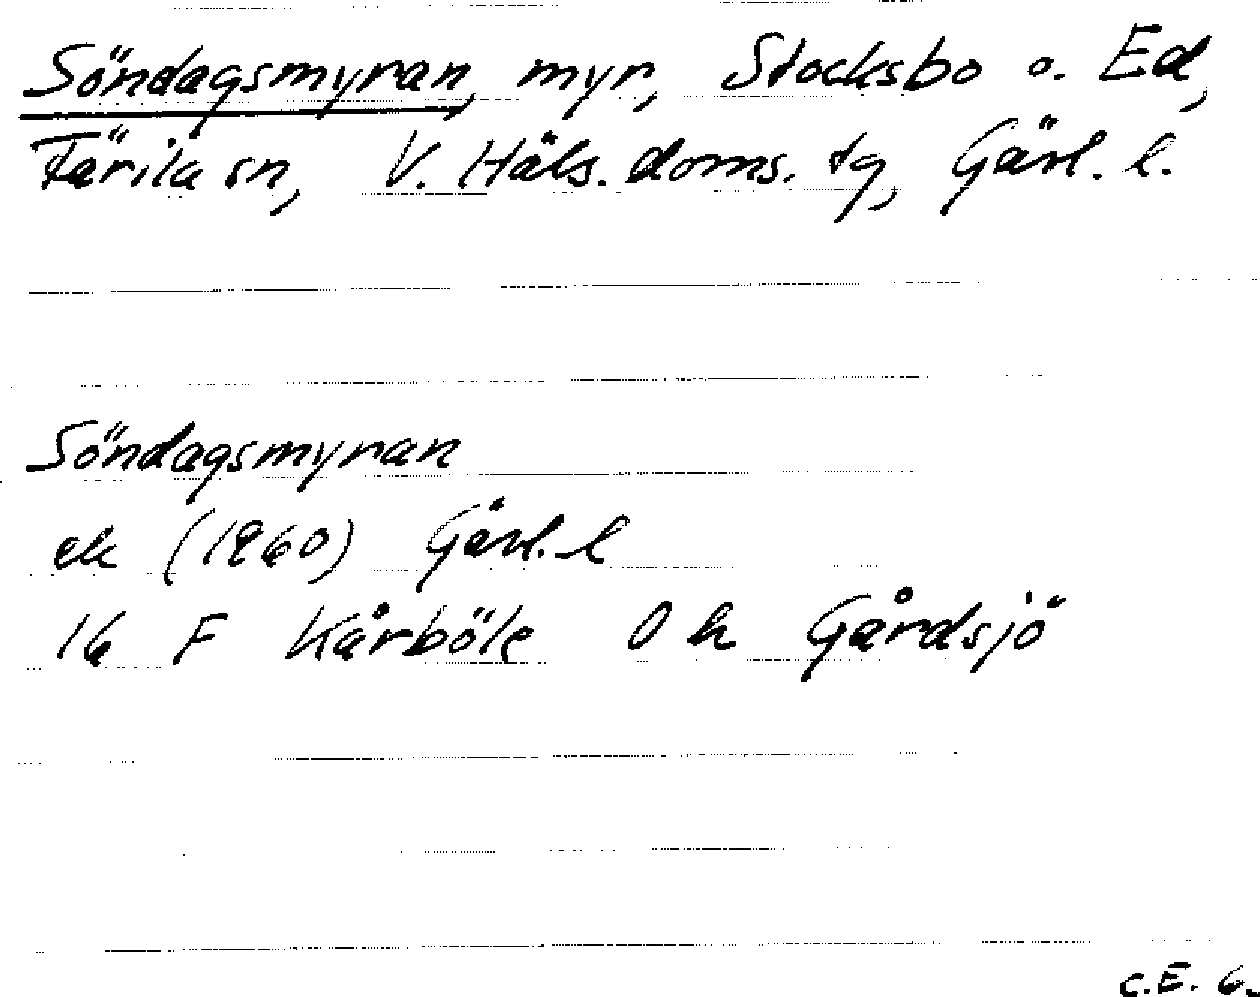 Söndagsmyran, myr, Stocksbo o. Ed,
Färila sn, V. Häls. doms. tg, Gävl. l.
Söndagsmyran
ek (1960) Gävl. l
16 F Kårböle 0 h Gårdsjö
C.E.